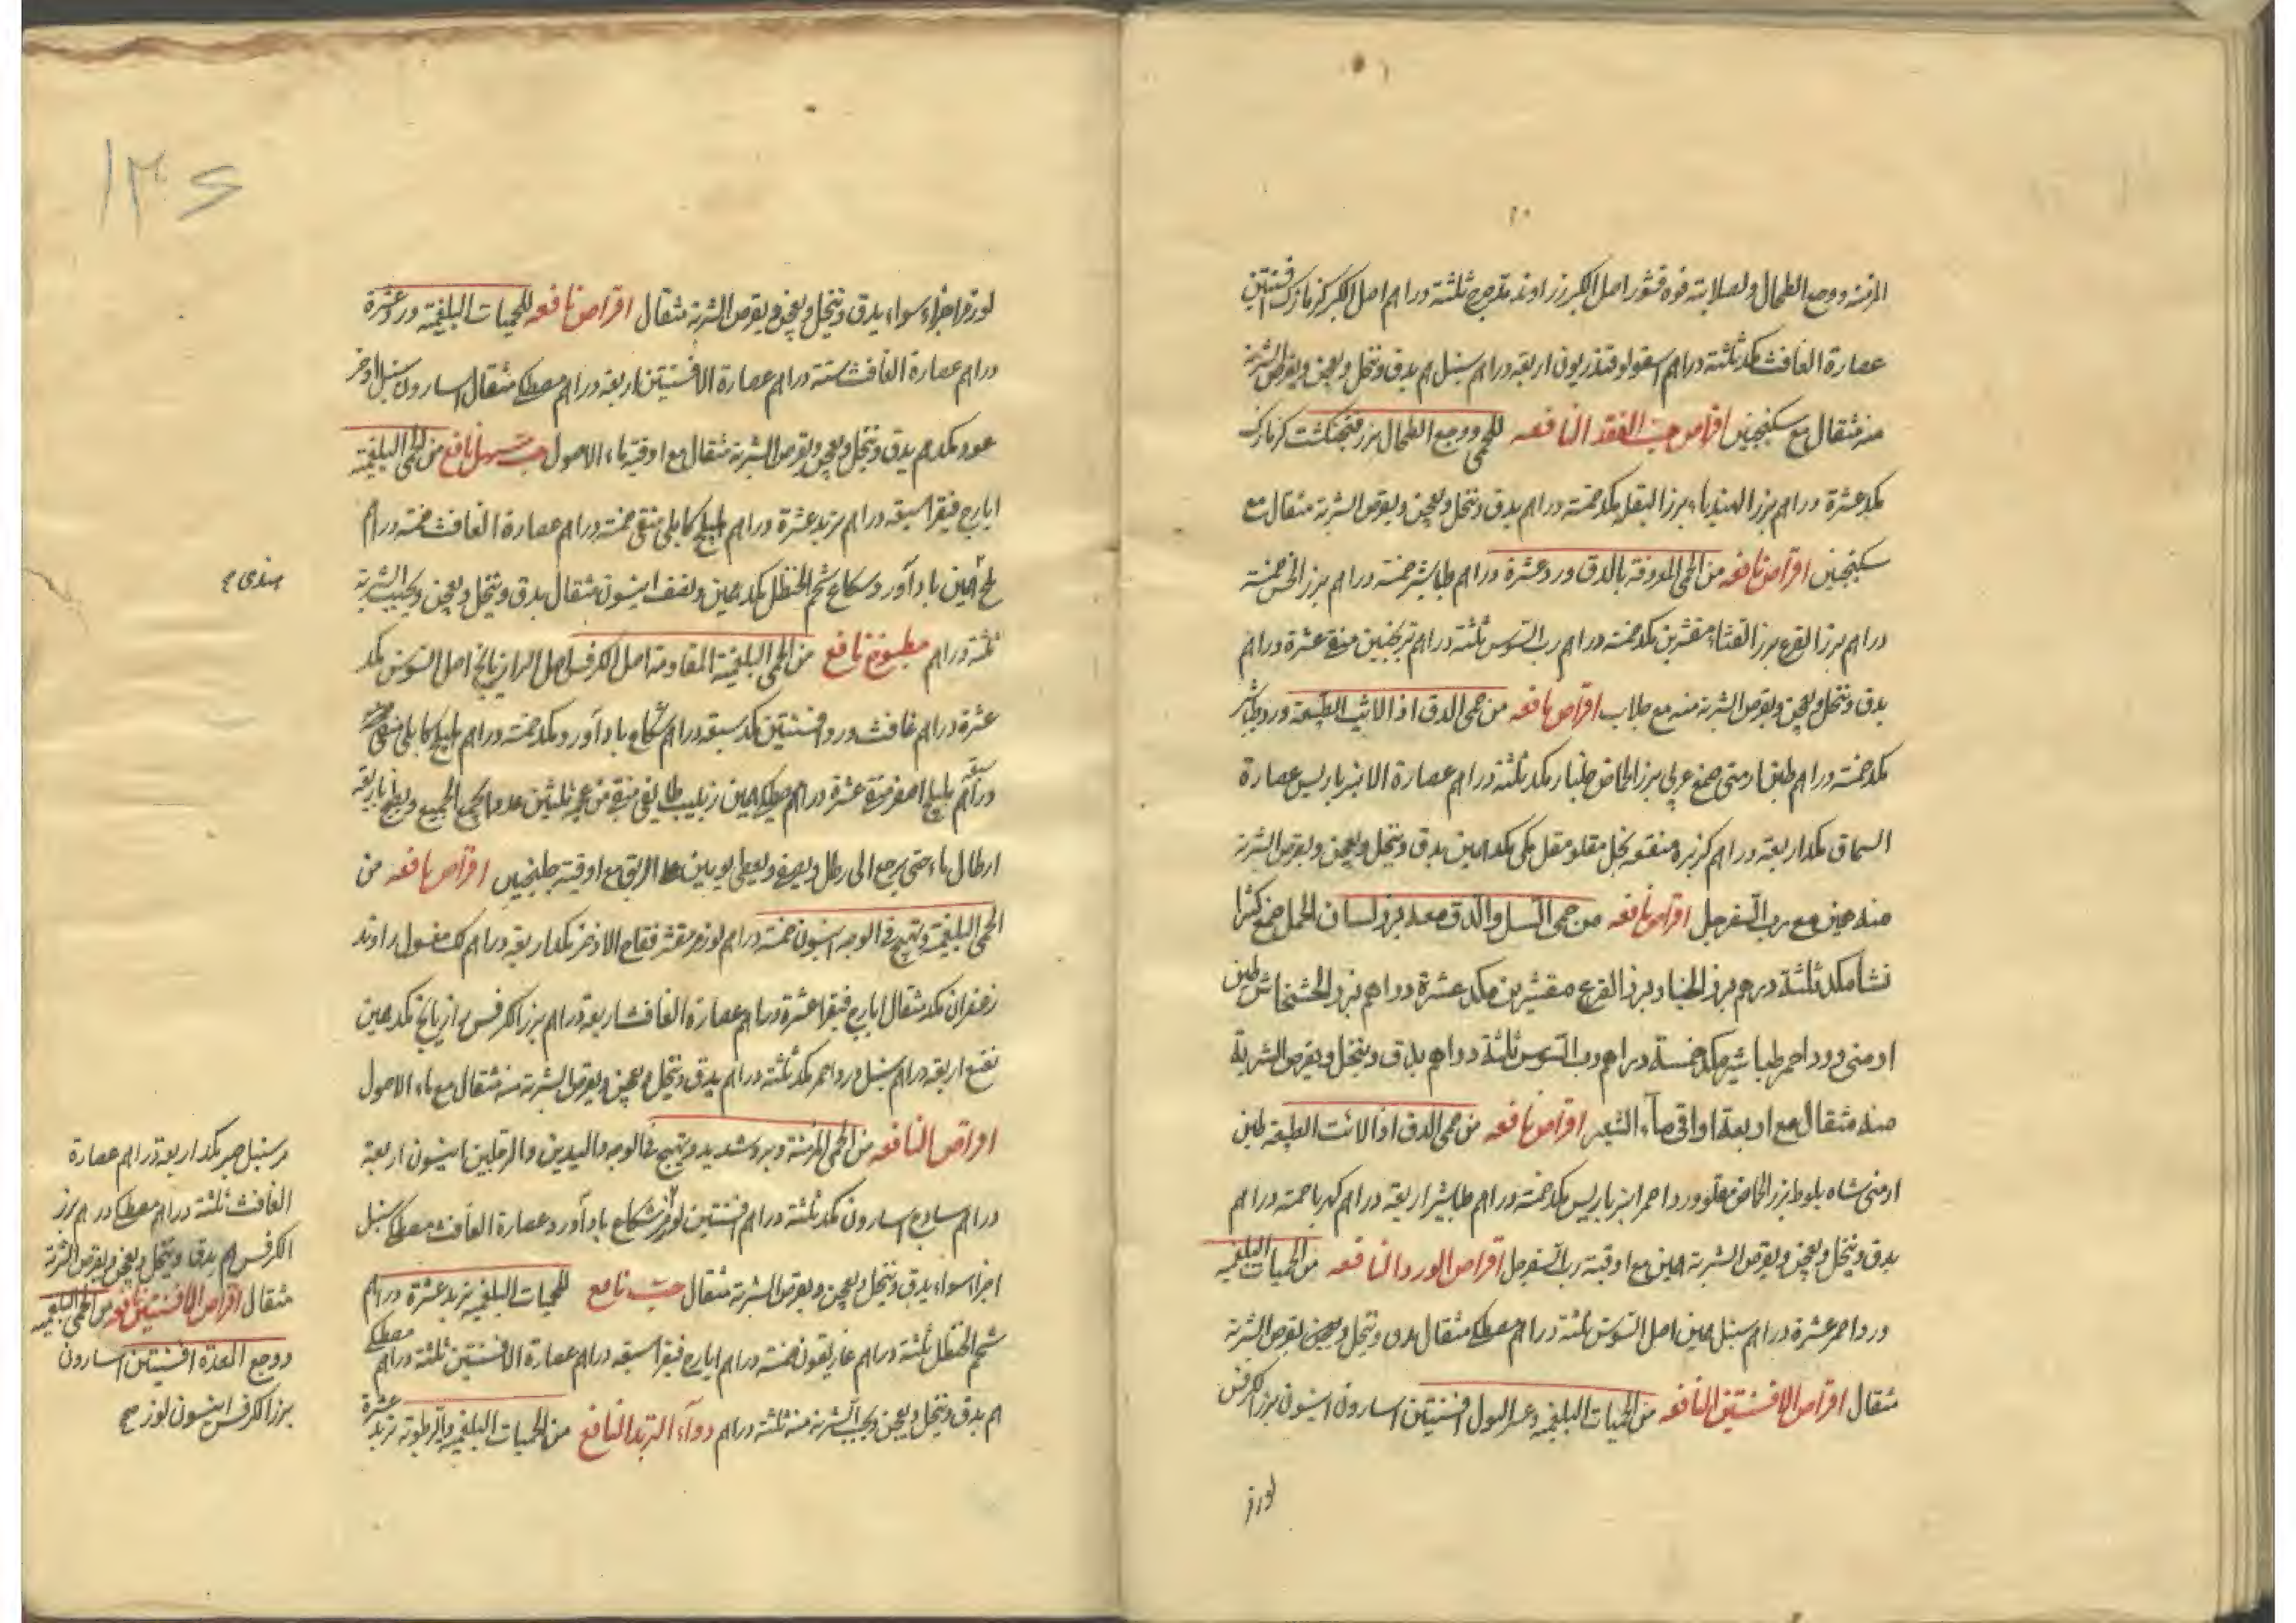 المزمنه ووجع الطحال ولصلابته فوه قشور اصل الكبر زراوند مدحرج ثلثة دراهم اصل الكبر كزمازك افسنتين
عصارة الغافث مكد ثلثة دراهم اسقولوقندريون اربعة دراهم سنبل هم يدق وينخل ويعجن ويقرص الشربة
منه مثقال مع سكنجبين اقراص حب الفقد النافعه للحمى ووجع الطحال بزر فنجنكشت كزمازك
مكد عشرة دراهم بزر الهندباء بزر البقله مكد خمسة دراهم يدق وينخل ويعجن ويقرص الشربة مثقال مع
سكنجبين اقراص نافعه من الحمى المعروفة بالدق ورد عشرة دراهم طباشير خمسة دراهم بزر الخس خمسة
دراهم بزر القرع بزر القثاء مقشرين مكد خمسة دراهم رب السوس ثلثة دراهم ترنجبين منقى عشرة دراهم
يدق وينخل ويعجن ويقرص الشربة منه مع جلاب اقراص نافعه من حمى الدق اذا لانت الطبيعة ورد طباشير
مكد خمسة دراهم طين ارمنى صمغ عربى بزر الحماض جلنار مكد ثلثة دراهم عصارة الانبرباريس عصارة
السماق مكد اربعة دراهم كزبرة منقعه بخل مقلو مقل مكى مكد همين يدق وينخل ويعجن ويقرص الشربة
منه همين مع رب السفرجل اقراص نافعه من حمى السل والدق معه بزر لسان الحمل صمغ كثيرا
نشا مكد ثلثة درهم بزر الخيار بزر القرع مقشرين مكد عشرة دراهم بزر الخشخاش طين
ارمنى وورد احمر طباشير مكد خمسة دراهم رب السوس ثلثة دراهم يدق وينخل ويقرص الشربة
منه مثقال مع اربعة اواقى ماء الشعير اقراص نافعه من حمى الدق اذا لانت الطبيعه طين
ارمنى شاه بلوط بزر الحماض مقلو ورد احمر انبرباريس مكد خمسة دراهم طباشير اربعة دراهم كهربا خمسة دراهم
يدق وينخل ويعجن ويقرص الشربة همين مع اوقية رب السفرجل اقراص الورد النافعه من الحميات البلغميه
ورد احمر عشرة دراهم سنبل همين اصل السوس ثلثة دراهم مصطكى مثقال يدق وينخل ويعجن يقرص الشربة
مثقال اقراص الافسنتين النافعه من الحميات البلغميه وعسر البول افسنتين اسارون انيسون بزر الكرفس
لوز مر
لوز مر اجزاء سواء يدق وينخل ويعجن ويقرص الشربة مثقال اقراص نافعه للحميات البلغمية ورد عشرة
دراهم عصارة الغافث ستة دراهم عصارة الافسنتين اربعة دراهم مصطكى مثقال اسارون سنبل اذخر
عود مكدهم يدق وينخل ويعجن ويقرص الشربة مثقال مع اوقية ماء الاصول حب مسهل نافع من الحمى البلغمية
ايارج فيقرا سبعة دراهم تربد عشرة دراهم هليلج كابلى منقى خمسة دراهم عصارة الغافث خمسة دراهم
ملح همين باد آورد شكاع شحم الحنظل مكد همين ونصف انيسون مثقال يدق وينخل ويعجن ويحبب الشربة
هندى صح
ثلثة دراهم مطبوخ نافع من الحمى البلغمية المتقادمة اصل الكرفس اصل الرازيانج اصل السوس مكد
عشرة دراهم غافث ورد افسنتين مكد سبعة دراهم شكاع باد آورد مكد خمسة دراهم هليلج كابلى منقى
دراهم هليلج اصفر منقى عشرة دراهم مصطكى همين زبيب طايفى منقى من عجمه ثلثين عددا يجمع الجميع ويطبخ باربعة
ارطال ماء حتى يرجع الى رطل ويصفى ويعطى يومين على الريق مع اوقية جلنجبين اقراص نافعه من
الحمى البلغمية وتهيج فى الوجه انيسون خمسة دراهم لوز مر مقشر فقاح الاذخر مكد اربعة دراهم لك مغسول راوند
زعفران مكد مثقال ايارج فيقرا عشرة دراهم عصارة الغافث اربعة دراهم بزر الكرفس رازيانج مكد همين
نعنع اربعة دراهم سنبل ورد احمر مكد ثلثة دراهم يدق وينخل ويعجن ويقرص الشربة منه مثقال مع ماء الاصول
اقراص النافعه من الحمى المزمنة وبرد شديد وتهيج فى الوجه واليدين والرجلين انيسون اربعة
دراهم سادج اسارون مكد ثلثة دراهم افسنتين لوز مر شكاع باد آورد عصارة الغافث مصطكى سنبل
اجزا سواء يدق وينخل ويعجن ويقرص الشربة مثقال حب نافع للحميات البلغمية تربد عشرة دراهم
شحم الحنظل ثلثة دراهم غاريقون خمسة دراهم ايارج فيقرا سبعة دراهم عصارة الافسنتين ثلثة دراهم مصطكى
هم يدق وينخل ويعجن ويحبب الشربة منه ثلثة دراهم دواء التربد النافع من الحميات البلغمية والرطوبة تربد عشرة
مر سنبل صبر مكد اربعة دراهم عصارة
الغافث ثلثة دراهم مصطكى دراهم بزر
الكرفس هم يدق وينخل ويعجن ويقرص الشربة
مثقال اقراص الافسنتين نافعه من الحمى البلغميه
ووجع المعدة افسنتين اسارون
بزر الكرفس انيسون لوز صح